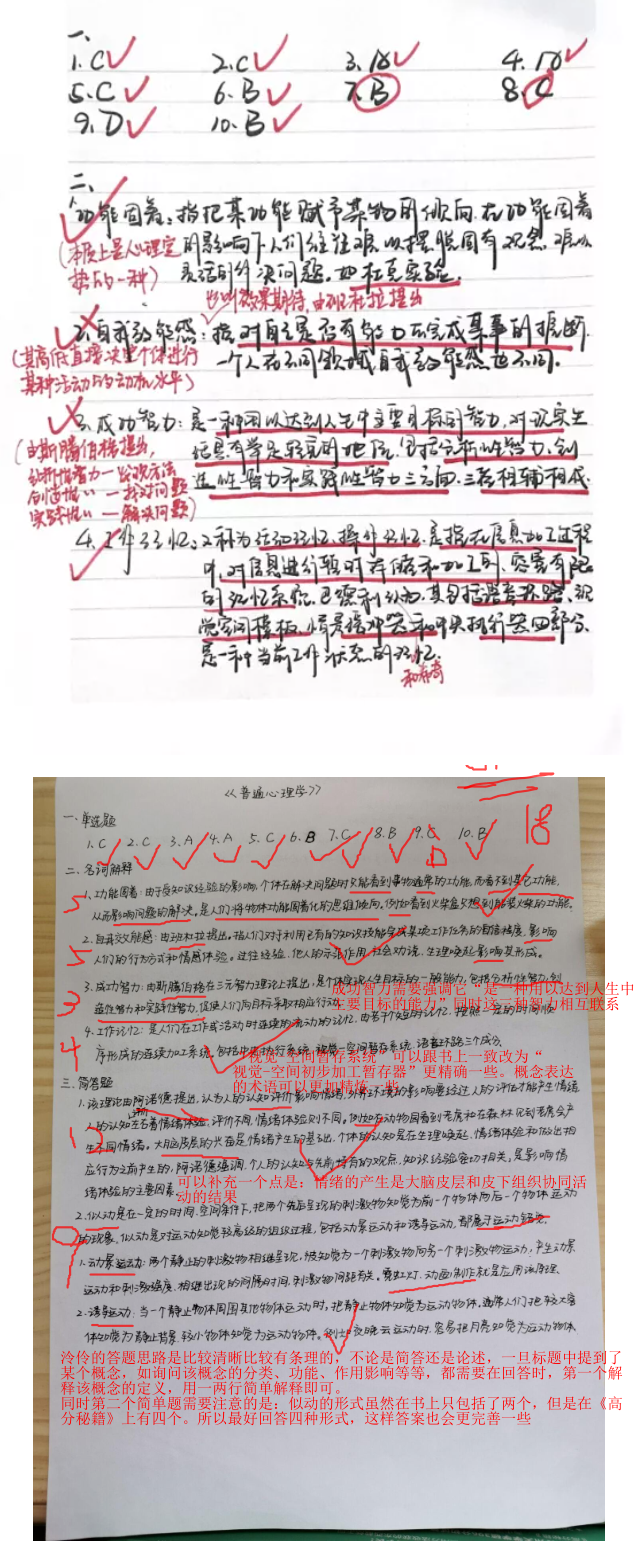 一、
1. C 2. C 3. A 4. A
5. C 6. B 7. B 8. C
9. D 10. B
二、
功能固着：指把某功能赋予某物的倾向，在功能固着
的影响下人们往往难以摆脱固有观念，难以
灵活的解决问题。如杜克实验。
(本质上是心理定
势的一种)
也叫效果期待，由班杜拉提出
2. 自我效能感：指对自己是否有能力去完成某事的推断，
一个人在不同领域自我效能感也不同。
(其高低直接决定个体进行
某种活动的动机水平)
3. 成功智力：是一种用以达到人生中主要目标的智力，对现实生
活具有举足轻重的地位，包括分析性智力、创
造性智力和实践性智力三方面，三者相辅相成。
(由斯腾伯格提出，
分析性智力—发现方法
创造性〃—找对问题
实践性〃—解决问题)
4. 工作记忆：又称为活动记忆、操作记忆，是指在信息加工过程
中，对信息进行暂时存储和加工的、容量有限
的记忆系统，巴德利认为，其包括语音环路、视
觉空间模板、情景缓冲器和中央执行器四部分，
是一种当前工作状态的记忆。
《普通心理学》
一、单选题
1. C 2. C 3. A 4. A 5. C 6. B 7. C 8. B 9. C 10. B
D
18
二、名词解释
1. 功能固着：由于受知识经验的影响，个体在解决问题时只能看到事物通常的功能，而看不到其它功能，
从而影响问题的解决，是人们将物体功能固着化的思维倾向，例如看到火柴盒只想到能装火柴的功能。
5
2. 自我效能感：由班杜拉提出。指人们对于利用已有的知识技能完成某项工作任务的自信程度，影响
人们的行为方式和情感体验。过往经验、他人的示范作用、社会劝说、生理唤起影响其形成。
5
3. 成功智力：由斯腾伯格在三元智力理论上提出，是个体实现人生目标的一般能力，包括分析性智力、创
造性智力和实践性智力，促使人们向目标采取相应行动
3
成功智力需要强调它“是一种用以达到人生中
主要目标的能力”同时这三种智力相互联系
4. 工作记忆：是人们在工作或活动时连续的流动的记忆，由若干个短时记忆，按照一定的时间顺
序形成的连续加工系统，包括中央执行系统、视觉—空间暂存系统、语音环路三个成分
4
“视觉-空间暂存系统”可以跟书上一致改为“
视觉-空间初步加工暂存器”更精确一些。概念表达
的术语可以更加精炼一些
三、简答题
1. 该理论由阿诺德提出，认为人的认知评价影响情绪，外界环境的影响要经过人的评估才能产生情绪，
人的认知左右着情绪体验，评价不同，情绪体验则不同。例如在动物园看到老虎和在森林见到老虎会产
生不同情绪。大脑皮层的兴奋是情绪产生的基础，个体的认知是在生理唤起、情绪体验和做出相
应行为之前产生的，阿诺德强调，个人的认知与先前持有的观点、知识经验密切相关，是影响情
绪体验的主要因素
12
可以补充一个点是：情绪的产生是大脑皮层和皮下组织协同活
动的结果
2. 似动是在一定的时间、空间条件下，把两个先后呈现的刺激物知觉为前一个物体向后一个物体运动
的现象，似动是对运动知觉较高级的组织过程，包括动景运动和诱导运动，都属于运动错觉
9
1. 动景运动：两个静止的刺激物相继呈现，被知觉为一个刺激物向另一个刺激物运动，产生动景
运动和刺激强度、相继出现的间隔时间、刺激物间距有关，霓虹灯、动画制作就是应用该原理
2. 诱导运动：当一个静止物体周围其他物体运动时，把静止物体知觉为运动物体，通常人们把较大客
体知觉为静止背景，较小物体知觉为运动物体，例如夜晚云运动时，容易把月亮知觉为运动物体
泠伶的答题思路是比较清晰比较有条理的，不论是简答还是论述，一旦标题中提到了
某个概念，如询问该概念的分类、功能、作用影响等等，都需要在回答时，第一个解
释该概念的定义，用一两行简单解释即可。
同时第二个简单题需要注意的是：似动的形式虽然在书上只包括了两个，但是在《高
分秘籍》上有四个。所以最好回答四种形式，这样答案也会更完善一些